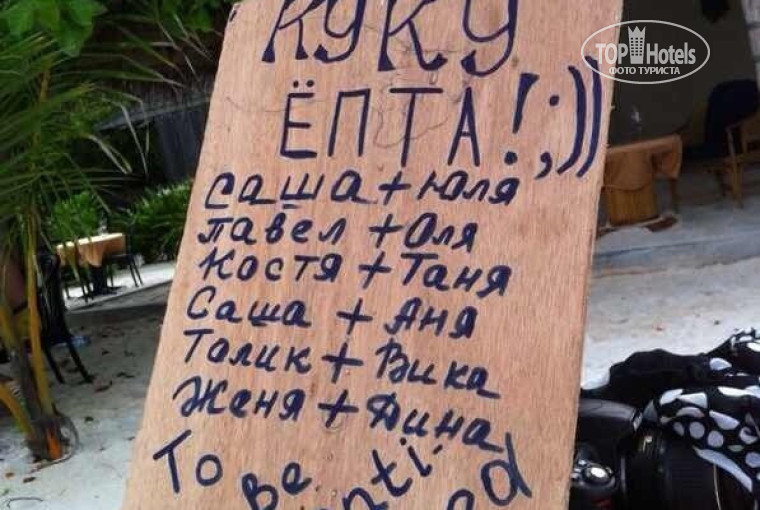 TOP Hotels
ФОТО ТУРИСТА
КУКУ
ЁПТА!;))
Саша+Юля
Павел+Оля
Костя+Таня
Саша+Аня
Толик+Вика
Женя+Дина
To Be